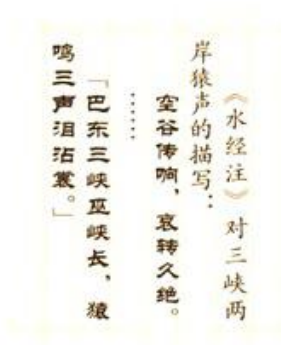 《水经注》对三峡两
岸猿声的描写：
空谷传响，哀转久绝。
……
「巴东三峡巫峡长，猿
鸣三声泪沾裳。」